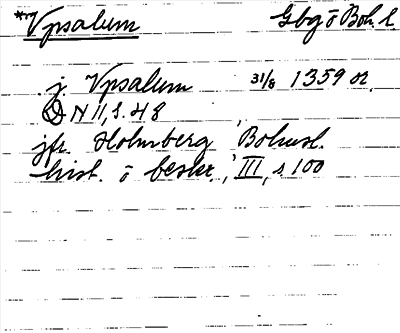 *Vpsalum Gbg o Boh. l.
j. Vpsalum 31/8 1359 or.
N 11, s. 48
jfr. Holmberg, Bohusl.
hist. o beskr., III, s 100